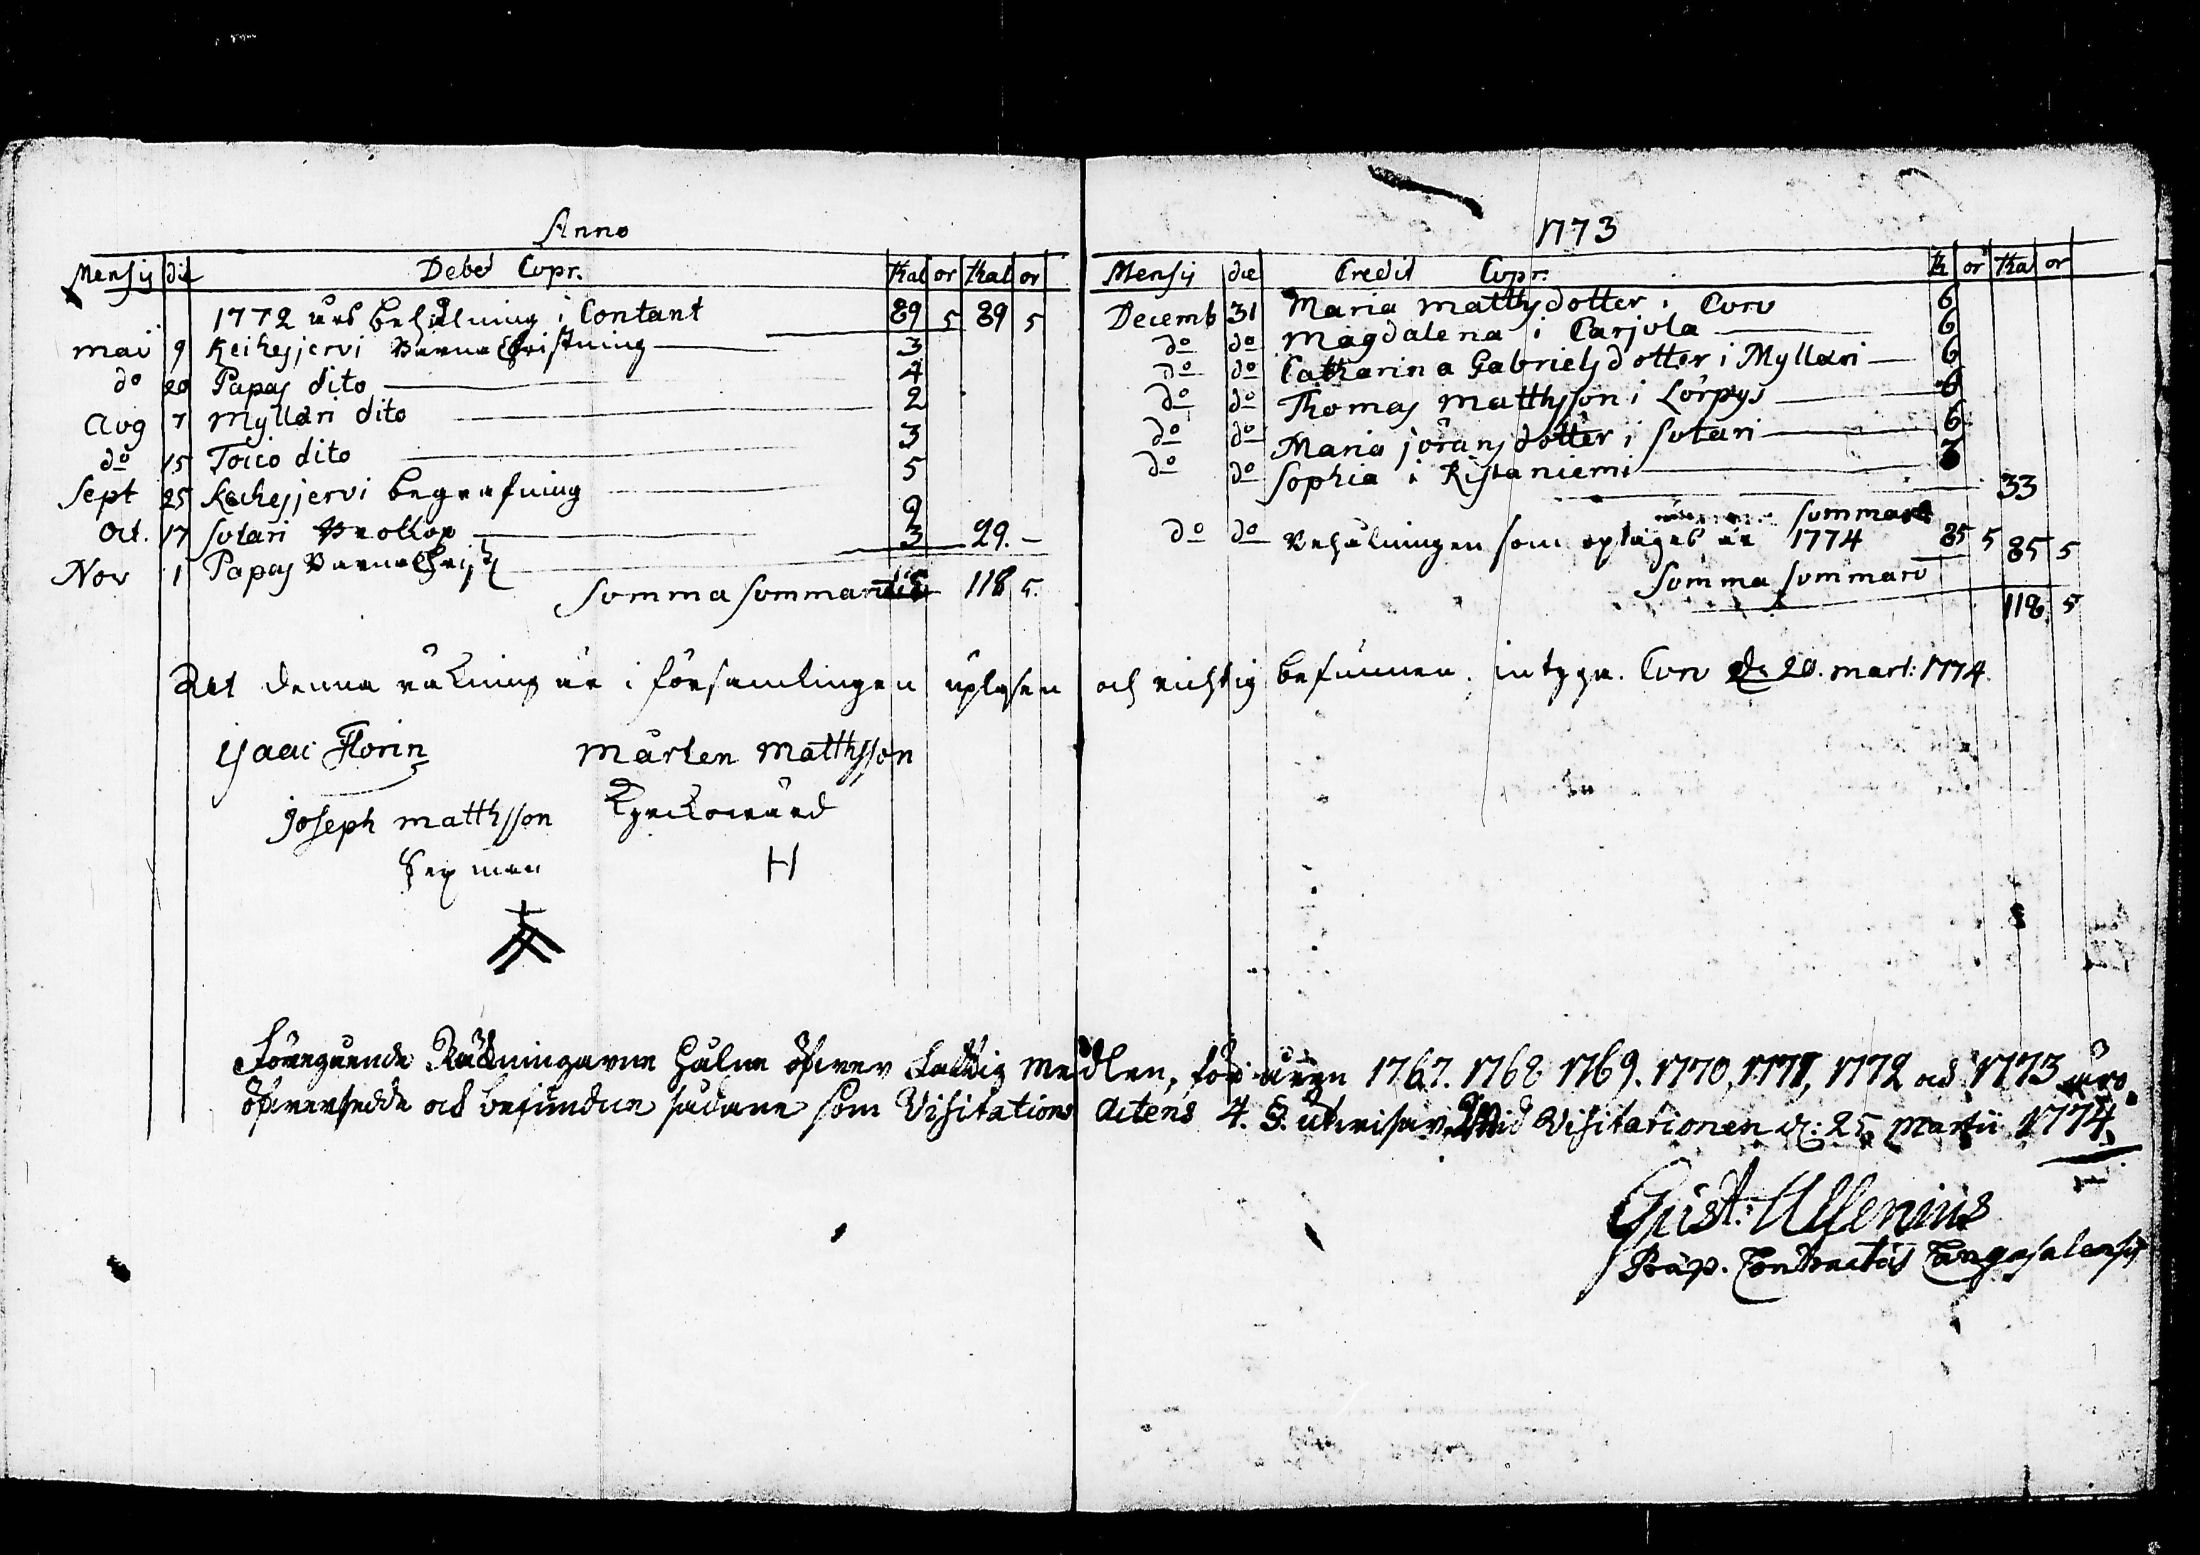 Anno
Mensis die Debet Cupr. thal or thal or
1772 års behålning i Contant 89 5 89 5
maii 9 Keihesjervi Barnachristning 3
do 20 Papas dito 4
Aug 7 Myllari dito 2
do 15 Toico dito 3
Sept 25 Keihesjervi begrafning 5
Oct. 17 Sutari Brollop 9
Nov 1 Papas Barnachrist 3 29. -
Summa Summarum 118 5.
1773
Mensis die Credit Cupr. th or tha or
Decemb 31 Maria Matthsdotter i Curu 6
do do Magdalena i Carjula 6
do do Catharina Gabrielsdotter i Myllari 6
do do Thomas Matthsson i Lörpys 6
do do Maria jöransdotter i Sutari 6
do do Sophia i Ristaniemi 3 33
do do Behålningen som optages år 1774 85 5 85 5
Summa Summaru 118 5
Att denna räkning är i församlingen upläsen och richtig befunnen, intyga. Curu d. 20. mart: 1774.
Isaac Florin Mårten Matthsson
Joseph matthsson Kyrckowärd
Sex man H
Föregående Räkningarne hålne öfwer Fattig Medlen, för åren 1767. 1768 1769. 1770, 1771, 1772 och 1773 äro
öfwersedde och befundne sådane som Visitations Actens 4. §. utwisar. Wid Visitationen d: 25 Martii 1774.
Gust: Allenius
Præp. Contractus Kangasalensis